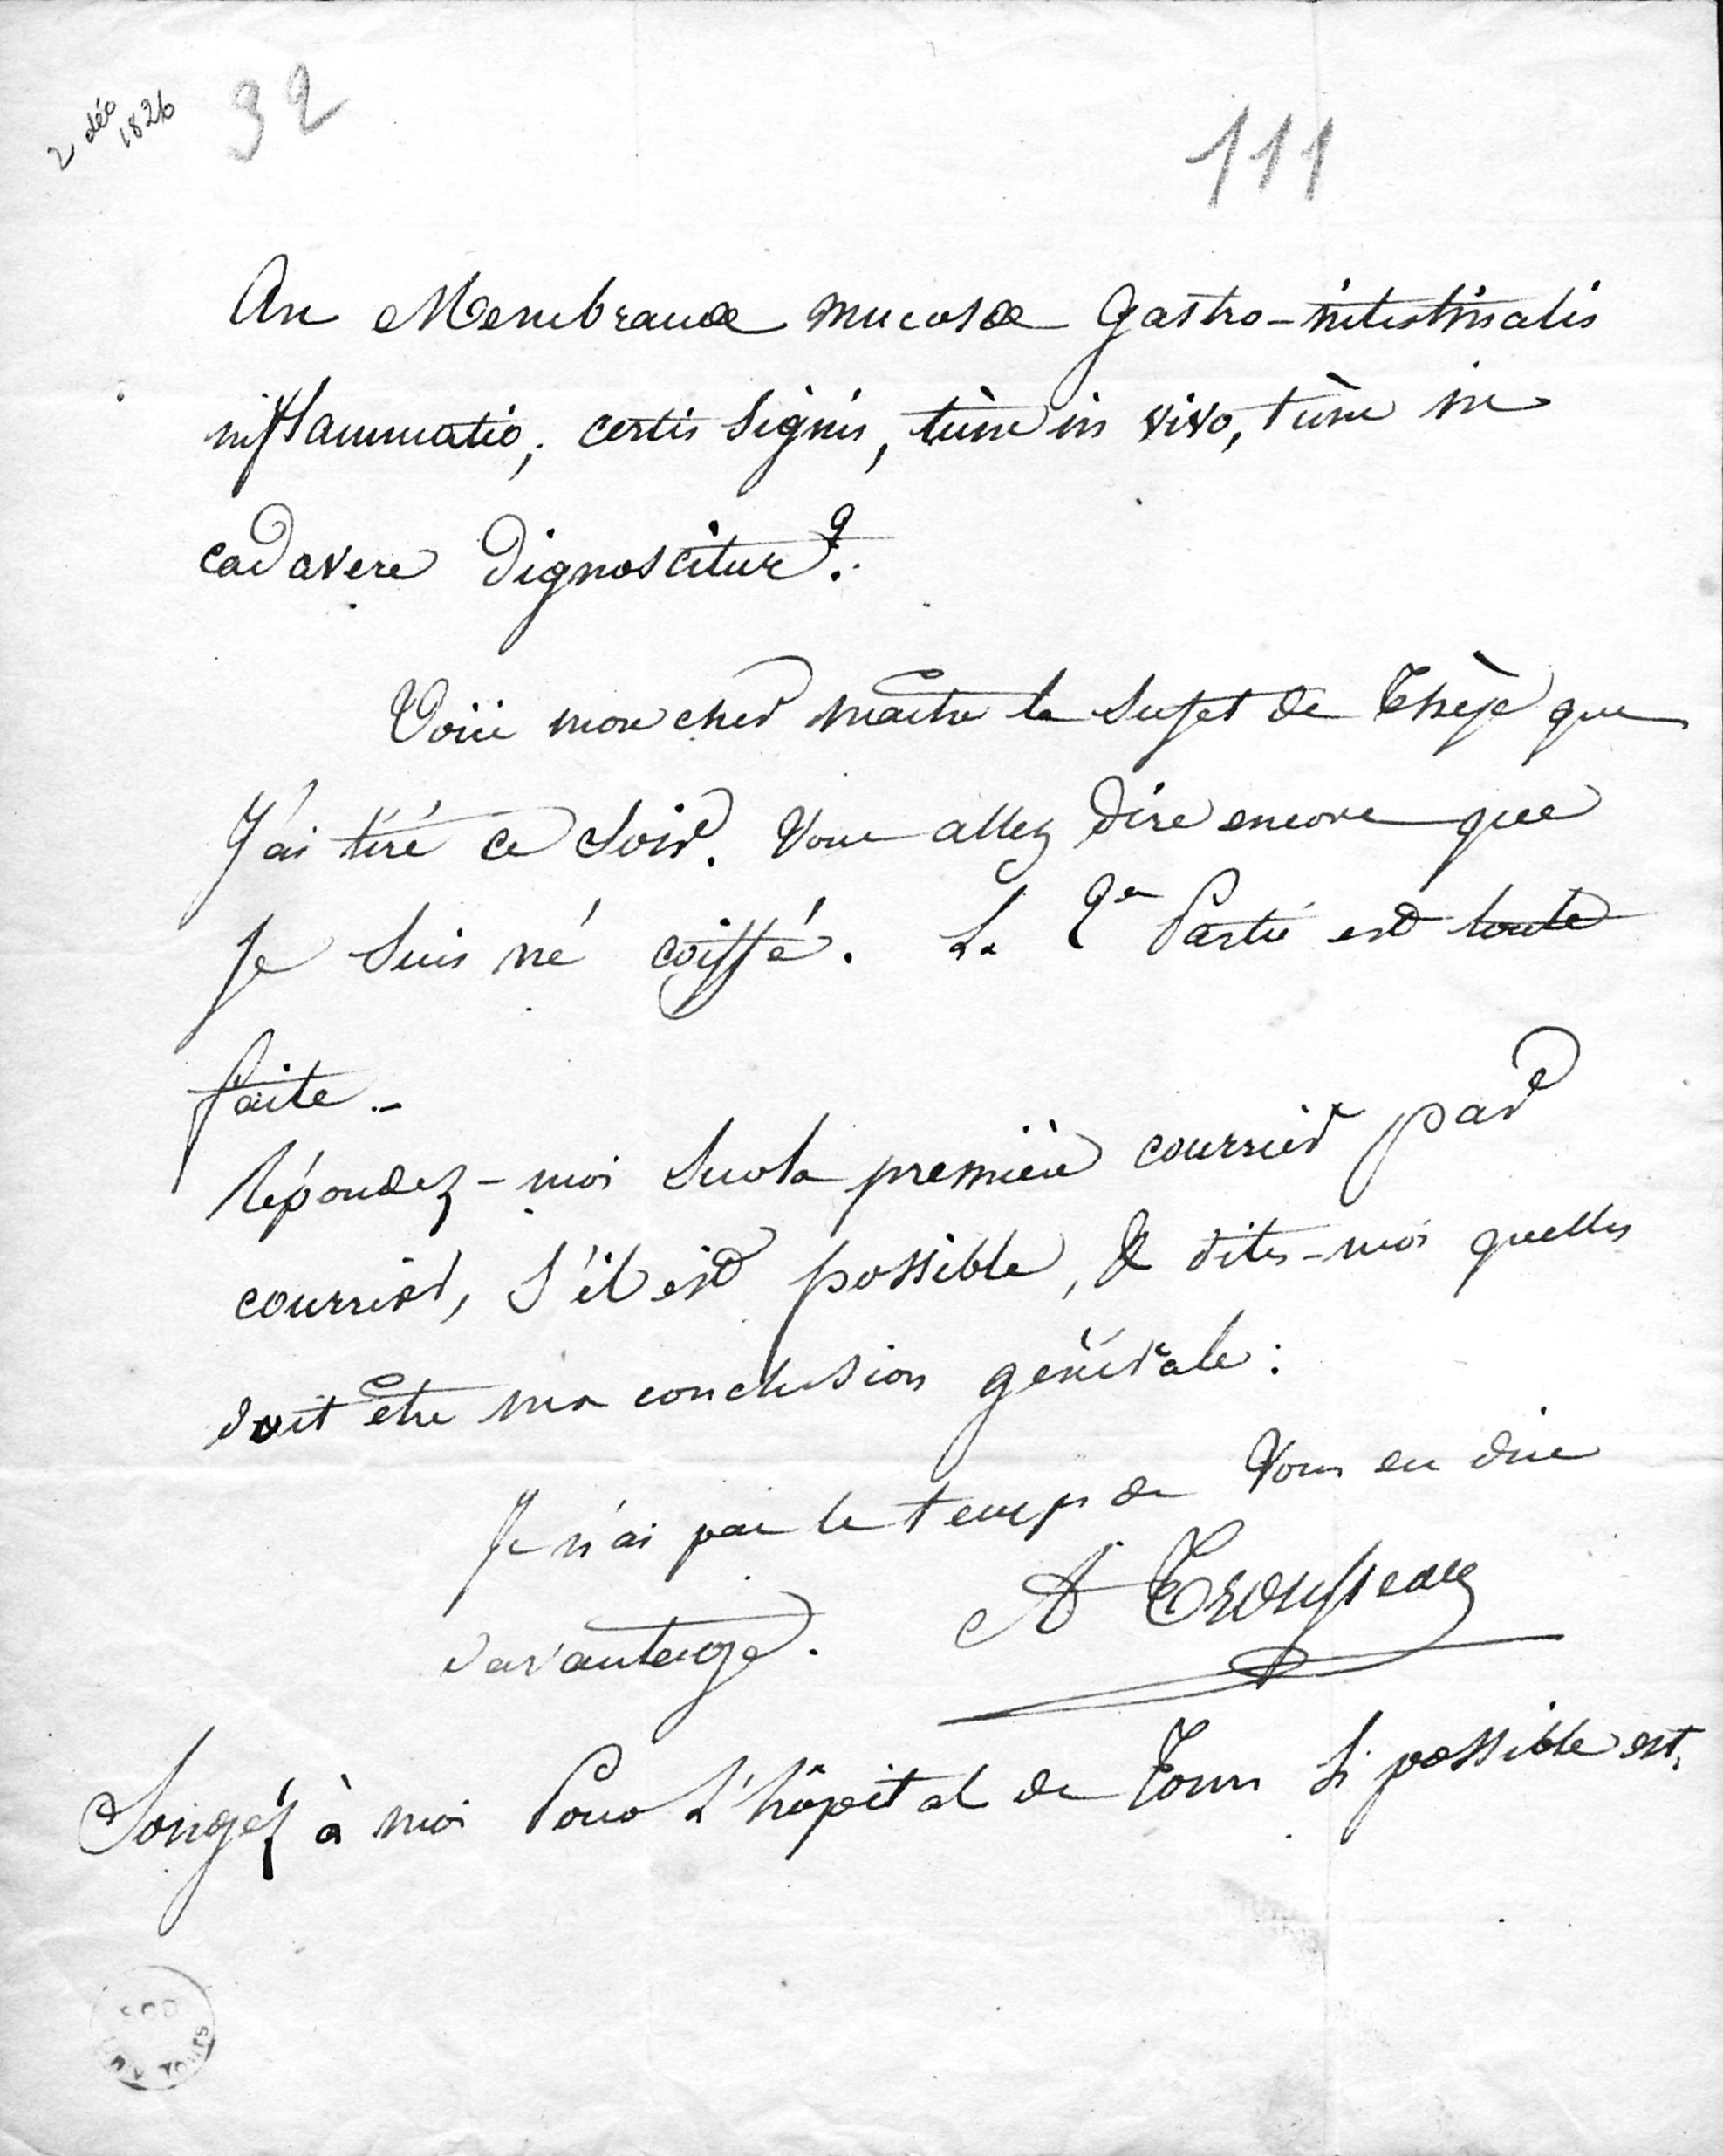 2 déc
1826
32
111
An Membranæ mucosæ gastro-intestinalis
inflammatio, certis signis, tùm in vivo, tùm in
cadavere dignoscitur?
Voici mon cher maître le sujet de Thèse que
J'ai tiré ce soir. Vous allez dire encore que
je suis né coiffé. La 2e Partie est toute
faite -
Répondez-moi sur la première courrier par
courrier, s'il est possible, & dites-moi quelles
doit être ma conclusion générale :
Je n'ai pas le temps de vous en dire
davantage.
A Trousseau
Songez à moi Pour l'hôpital de Tours si possible est.
TOURS